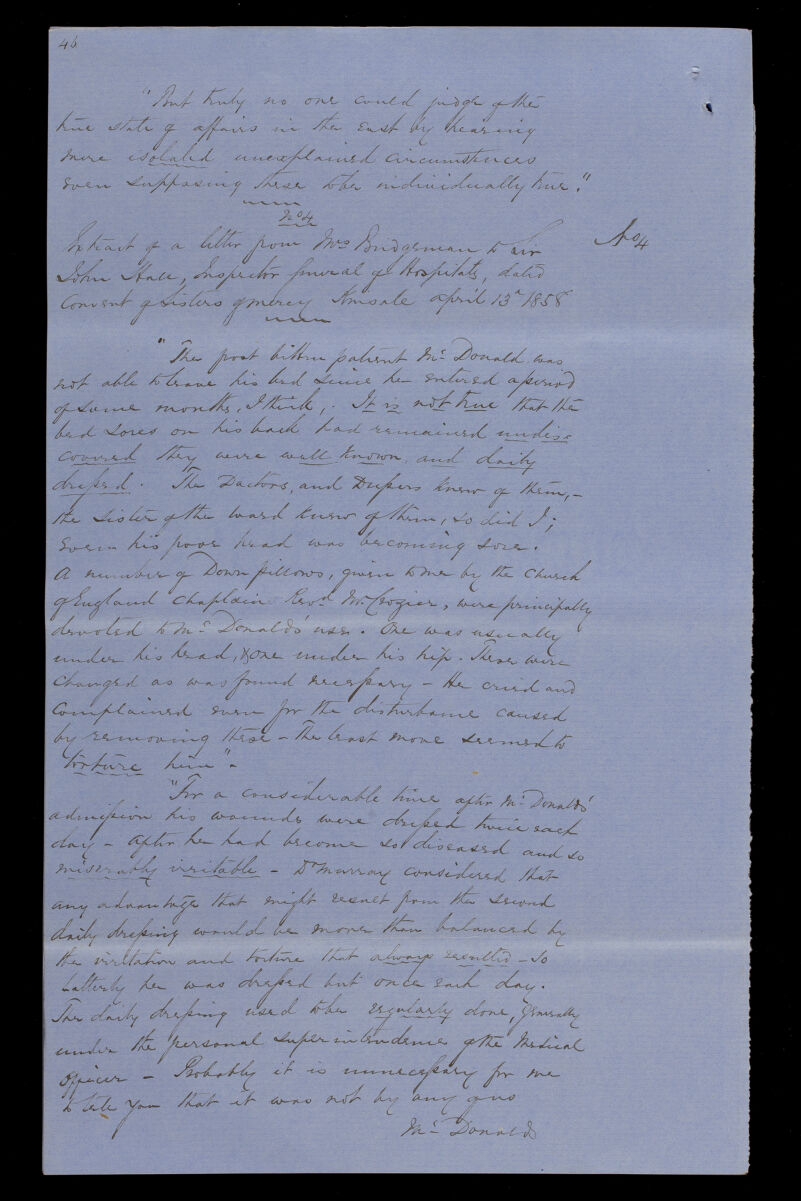 46
"But truly no one could judge of the
true state of affairs in the East by hearing
mere isolated unexplained circumstances
even supposing these to be individually true."
No 4
Extract of a letter from Mrs Bridgeman to Sir
No 4
John Hall, Inspector General of Hospitals, dated
Convent of Sisters of Mercy Kinsale April 13th 1858
"The frost bitten patient Mc Donald was
not able to leave his bed since he entered a period
of some months, I think,. It is not true that the
bed sores on his back had remained undis=
covered they were well known and daily
dressed. The Doctors, and Dressers knew of them,-
the Sister of the ward knew of them, so did I;
even his poor head was becoming sore.
A number of Down pillows, given to me by the Church
of England Chaplain Revd Mr Crozier, were principally
devoted to Mc Donalds' use. One was usually
under his head, & one under his hip. These were
changed as was found necessary - He cried and
complained even for the disturbance caused
by removing these - The least move seemed to
torture him" -
"For a considerable time after Mc Donalds'
admission his wounds were dressed twice each
day - after he had become so diseased and so
miserably irritable - Dr Murray considered that
any advantage that might result from the second
daily dressing would be more than balanced by
the irritation and torture that always resulted - So
Latterly he was dressed but once each day.
The daily dressing used to be regularly done, generally
under the personal superintendence of the Medical
Officer - Probably it is unnecessary for me
to tell you that it was not by any
Mc Donalds